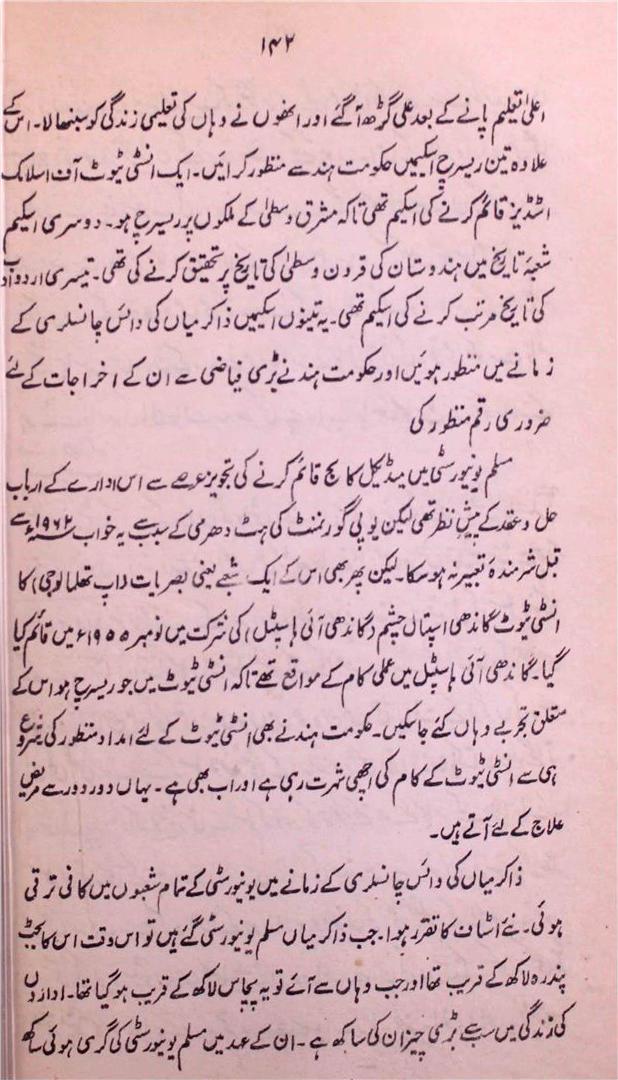 ۱۴۲
اعلیٰ تعلیم پانے کے بعد علی گڑھ آگئے اور انھوں نے وہاں کی تعلیمی زندگی کو سنبھالا۔ اس کے
علاوہ تین ریسرچ اسکیمیں حکومت ہند سے منظور کرائیں۔ ایک انسٹی ٹیوٹ آف اسلامک
اسٹڈیز قائم کرنے کی اسکیم تھی تاکہ مشرق وسطیٰ کے ملکوں پر ریسرچ ہو۔ دوسری اسکیم
شعبۂ تاریخ میں ہندوستان کی قرون وسطیٰ کی تاریخ پر تحقیق کرنے کی تھی۔ تیسری اردو ادب
کی تاریخ مرتب کرنے کی اسکیم تھی۔ یہ تینوں اسکیمیں ذاکر میاں کی وائس چانسلری کے
زمانے میں منظور ہوئیں اور حکومت ہند نے بڑی فیاضی سے ان کے اخراجات کے لئے
ضروری رقم منظور کی
مسلم یونیورسٹی میں میڈیکل کالج قائم کرنے کی تجویز عرصے سے اس ادارے کے ارباب
حل و عقد کے پیش نظر تھی لیکن یو پی گورنمنٹ کی ہٹ دھرمی کے سبب سے یہ خواب ۱۹۶۲ء سے
قبل شرمندہ تعبیر نہ ہو سکا۔ لیکن پھر بھی اس کے ایک شعبے یعنی بصریات (اپ تھلمالوجی) کا
انسٹی ٹیوٹ گاندھی اسپتال چشم (گاندھی آئی ہاسپٹل) کی شرکت میں نومبر ۱۹۵۵ء میں قائم کیا
گیا۔ گاندھی آئی ہاسپٹل میں عملی کام کے مواقع تھے تاکہ انسٹی ٹیوٹ میں جو ریسرچ ہو اس کے
متعلق تجربے وہاں کئے جاسکیں۔ حکومت ہند نے بھی انسٹی ٹیوٹ کے لئے امداد منظور کی شروع
ہی سے انسٹی ٹیوٹ کے کام کی اچھی شہرت رہی ہے اور اب بھی ہے۔ یہاں دور دور سے مریض
علاج کے لئے آتے ہیں۔
ذاکر میاں کی وائس چانسلری کے زمانے میں یونیورسٹی کے تمام شعبوں میں کافی ترقی
ہوئی۔ نئے اسٹاف کا تقرر ہوا۔ جب ذاکر میاں مسلم یونیورسٹی گئے ہیں تو اس وقت اس کا بجٹ
پندرہ لاکھ کے قریب تھا اور جب وہاں سے آئے تو یہ پچاس لاکھ کے قریب ہو گیا تھا۔ اداروں
کی زندگی میں سب سے بڑی چیز ان کی ساکھ ہے۔ ان کے عہد میں مسلم یونیورسٹی کی گری ہوئی ساکھ